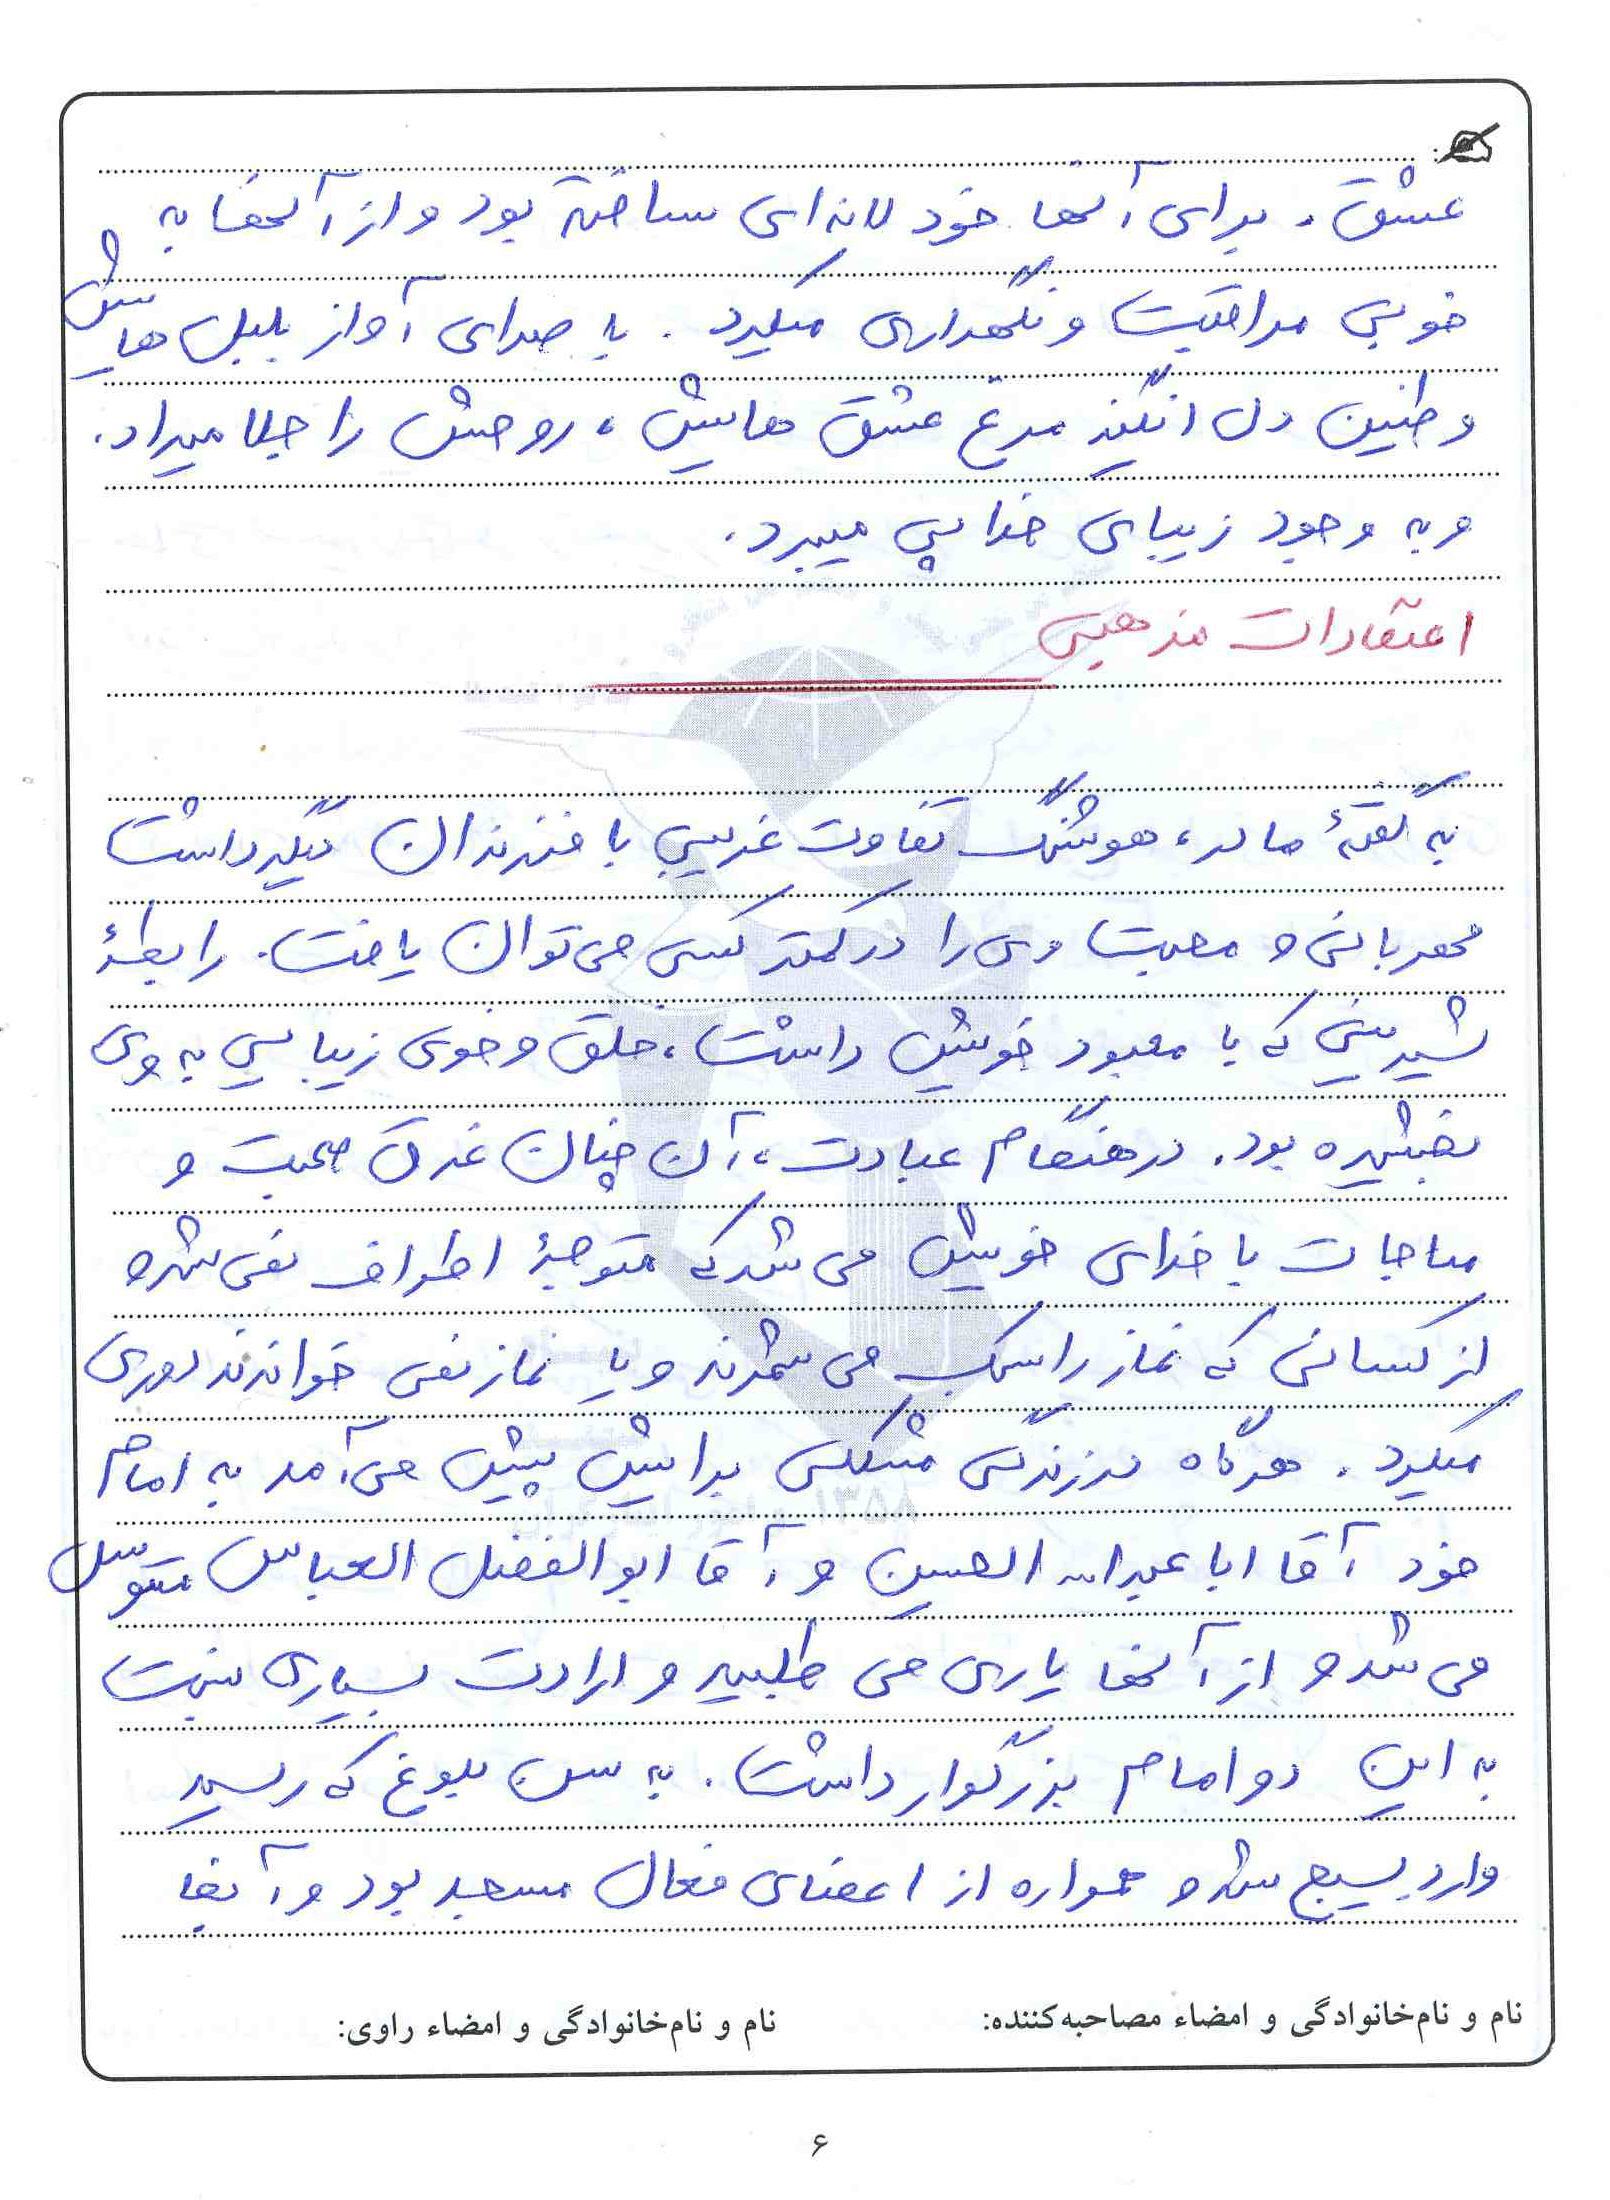 عشق. برای آنها خود لانه‌ای ساخته بود و از آنها به
خوبی مراقبت و نگهداری میکرد. با صدای آواز بلبل هایش
و طنین دل انگیز مرغ عشق هایش، روحش را جلا میداد.
و به وجود زیبای خدا پی میبرد.
اعتقادات مذهبی
به گفتهٔ مادر، هوشنگ تفاوت غریبی با فرزندان دیگر داشت
مهربانی و محبت وی را در کمتر کسی می‌توان یافت. رابطهٔ
شیرینی که با معبود خویش داشت، خلق و خوی زیبایی به وی
بخشیده بود. در هنگام عبادت، آن چنان غرق صحبت و
مناجات با خدای خویش می‌شد که متوجهٔ اطراف نمی‌شد و
از کسانی که نماز را سبک می‌شمردند و یا نماز نمی خواندند دوری
میکرد. هرگاه در زندگی مشکلی برایش پیش می‌آمد به امام
خود آقا ابا عبدالله الحسین و آقا ابوالفضل العباس متوسل
می‌شد و از آنها یاری می طلبید و ارادت بسیاری نسبت
به این دو امام بزرگوار داشت. به سن بلوغ که رسید
وارد بسیج شد و همواره از اعضای فعال مسجد بود و آنجا
نام و نام‌خانوادگی و امضاء مصاحبه‌کننده:
نام و نام‌خانوادگی و امضاء راوی:
۶